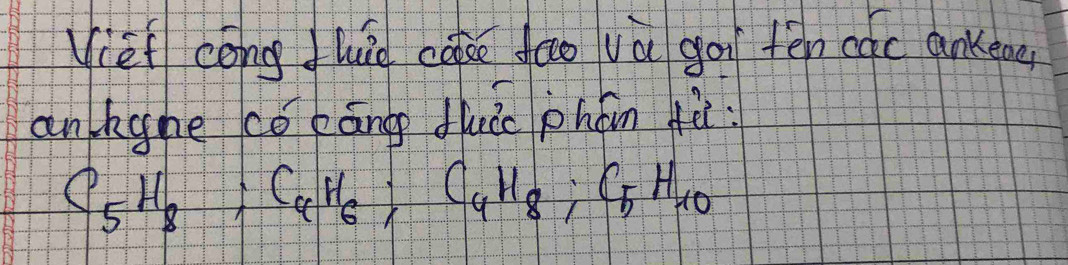 Viết công thức cấu tạo và gọi tên các ankene,
ankyne có công thức phân tử:
C₅H₈ ; C₄H₆ ; C₄H₈ ; C₅H₁₀